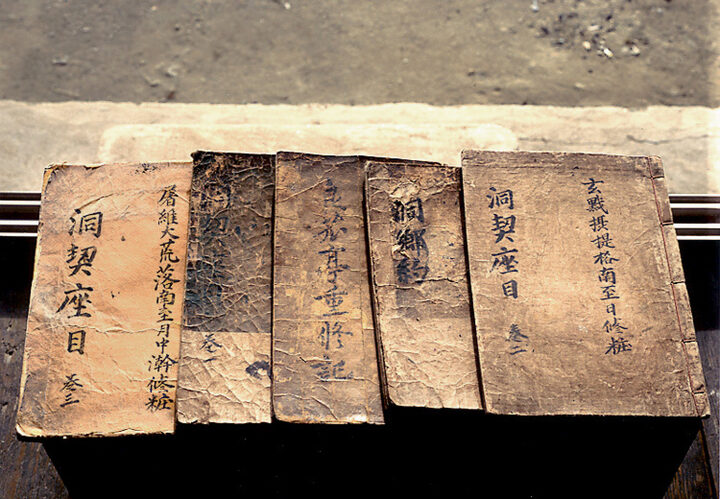 玄黓攝提格南至日修粧
洞契座目 卷二
洞鄉約
亭重修記
洞契
卷
屠維大荒落南至月中澣修粧
洞契座目 卷三